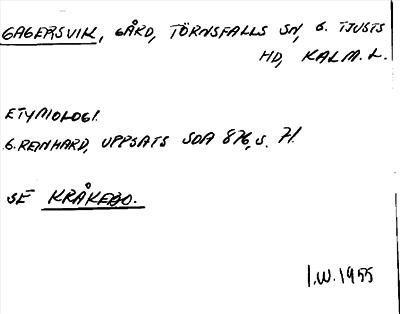 GAGERSVIK, GÅRD, TÖRNSFALLS SN, S. TJUSTS
HD, KALM. L.
ETYMOLOGI.
G. REINHARD, UPPSATS SOA 876, S. 71.
SE KRÅKEBO.
I.W. 1955